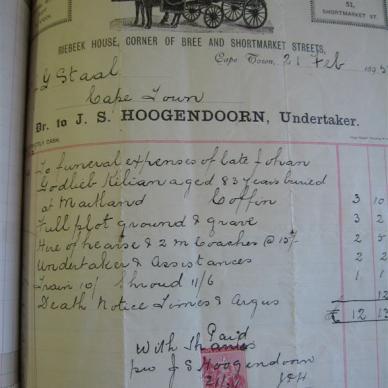 51,
SHORTMARKET ST.
RIEBEEK HOUSE, CORNER OF BREE AND SHORTMARKET STREETS,
Cape Town, 21 Feb 189
G Staal
Cape Town
Dr. to J. S. HOOGENDOORN, Undertaker.
To funeral expenses of late Johan
Godlieb Kilian aged 83 years buried
at Maitland Coffin 3 10
Full plot ground & grave 3 2
Hire of hearse & 2 m Coaches @ 15/- 2 5
Undertaker & Assistances 2
Train 10/ Shroud 11/6 1
Death Notice Times & Argus 12
£ 12 12
Paid
With Thanks
pro J S Hoogendoorn
JSH